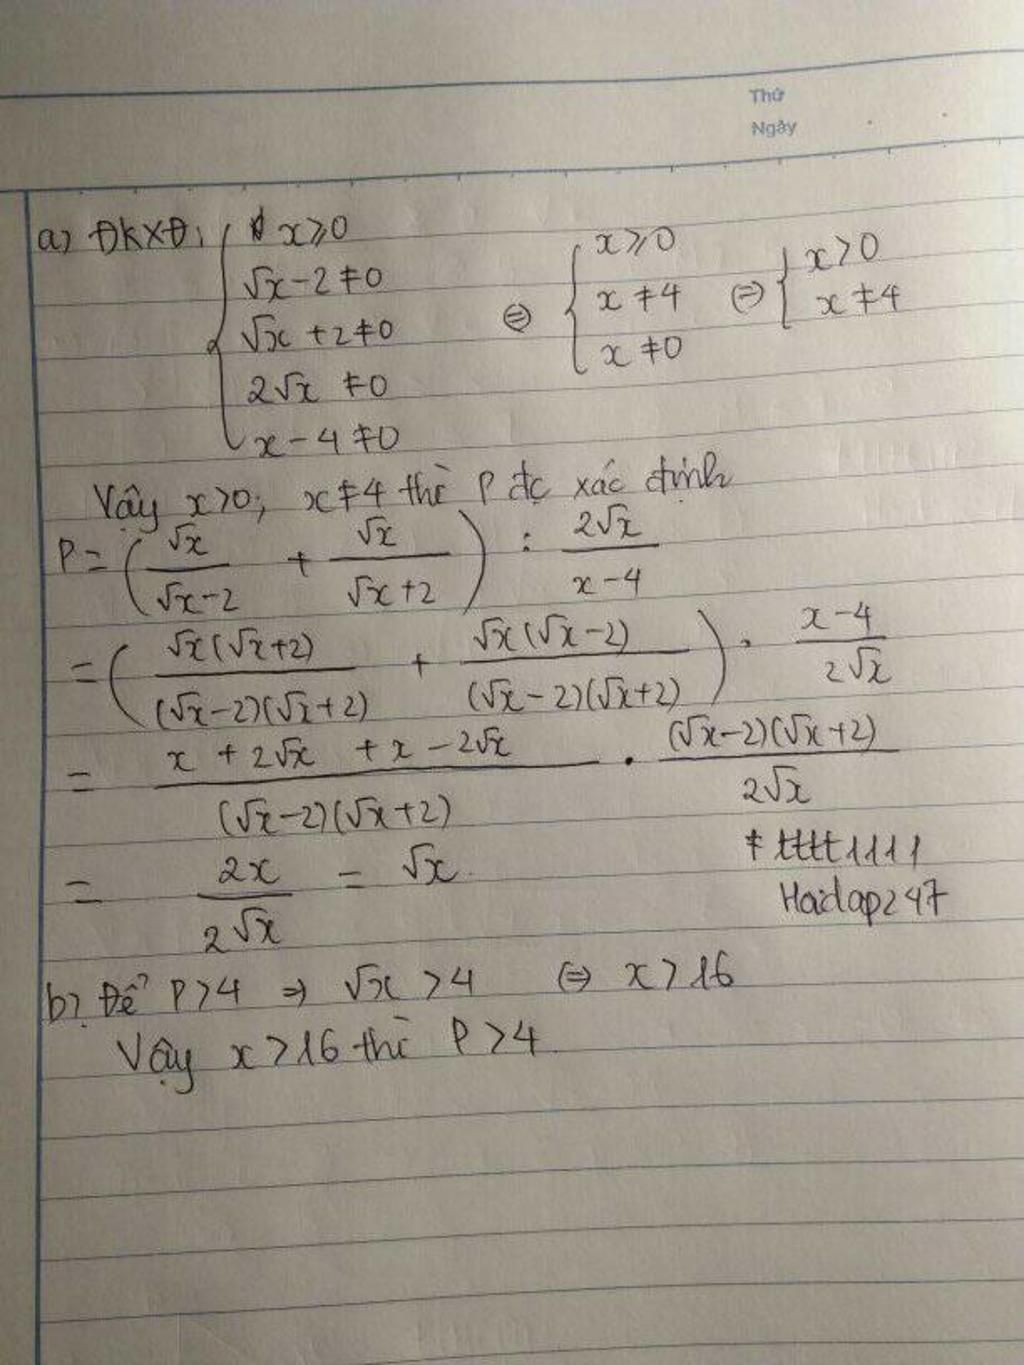 Thứ
Ngày
a) ĐKXĐ: { x ≥ 0
√x - 2 ≠ 0
√x + 2 ≠ 0
2√x ≠ 0
x - 4 ≠ 0
⇔ { x ≥ 0
x ≠ 4
x ≠ 0
⇔ { x > 0
x ≠ 4
Vậy x > 0; x ≠ 4 thì P đc xác định
P = (√x/(√x - 2) + √x/(√x + 2)) : 2√x/(x - 4)
= (√x(√x + 2)/((√x - 2)(√x + 2)) + √x(√x - 2)/((√x - 2)(√x + 2))) . (x - 4)/(2√x)
= (x + 2√x + x - 2√x)/((√x - 2)(√x + 2)) . ((√x - 2)(√x + 2))/(2√x)
= 2x/(2√x) = √x
# tttt1111
Hoidap247
b) Để P > 4 ⇒ √x > 4 ⇔ x > 16
Vậy x > 16 thì P > 4